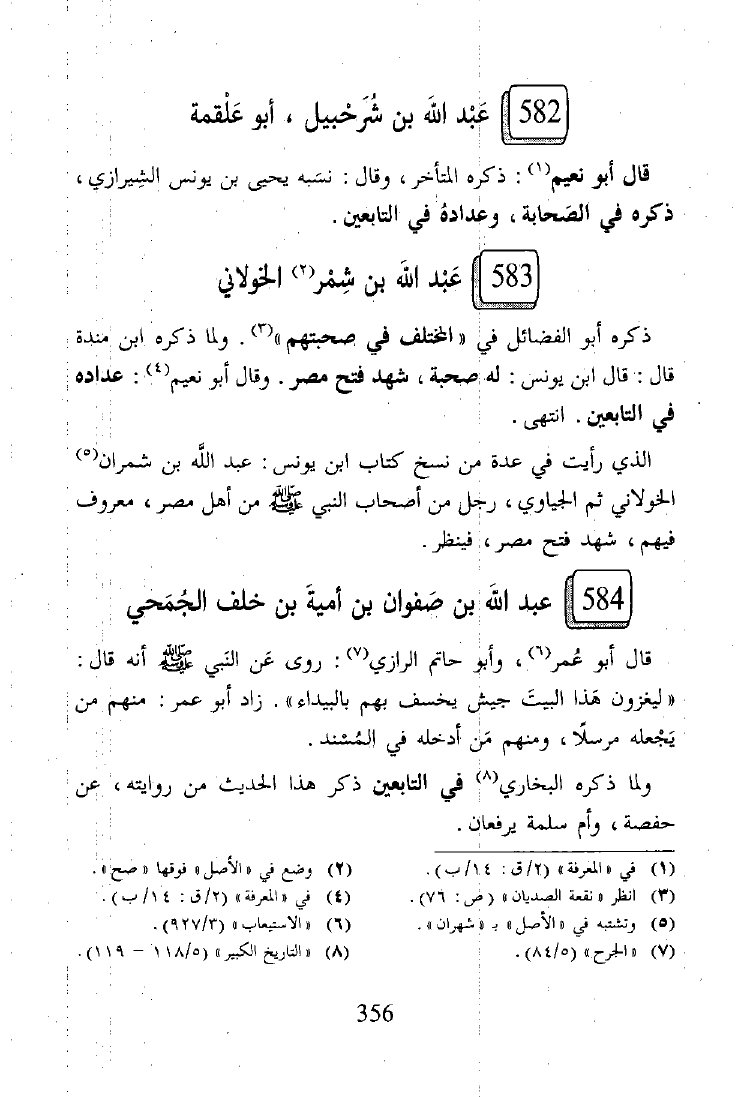 582 عَبْد الله بن شُرَحْبيل ، أبو عَلْقمة
قال أبو نعيم(١) : ذكره المتأخر ، وقال : نسَبه يحيى بن يونس الشِيرازي ،
ذكره في الصَحابة ، وعدادهُ في التابعين .
583 عَبْد الله بن شِمْر(٢) الخولاني
ذكره أبو الفضائل في « المختلف في صحبتهم »(٣) . ولما ذكره ابن مندة
قال : قال ابن يونس : له صحبة ، شهد فتح مصر . وقال أبو نعيم(٤) : عداده
في التابعين . انتهى .
الذي رأيت في عدة من نسخ كتاب ابن يونس : عبد اللَّه بن شمران(٥)
الخولاني ثم الجياوي ، رجل من أصحاب النبي ﷺ من أهل مصر ، معروف
فيهم ، شهد فتح مصر ، فينظر .
584 عبد الله بن صَفوان بن أميةَ بن خلف الجُمَحي
قال أبو عُمر(٦) ، وأبو حاتم الرازي(٧) : روى عَن النَبي ﷺ أنه قال :
« ليغزون هَذا البيتَ جيش يخسف بهم بالبيداء » . زاد أبو عمر : منهم من
يَجْعله مرسلًا ، ومنهم مَن أدخله في المُسْند .
ولما ذكره البخاري(٨) في التابعين ذكر هذا الحديث من روايته ، عن
حفصة ، وأم سلمة يرفعان .
(١) في « المعرفة » (٢/ق : ١٤/ب) .
(٢) وضع في « الأصل » فوقها « صح » .
(٣) انظر « نقعة الصديان » (ص : ٧٦) .
(٤) في « المعرفة » (٢/ق : ١٤/ب) .
(٥) وتشتبه في « الأصل » بـ « شهران » .
(٦) « الاستيعاب » (٩٢٧/٣) .
(٧) « الجرح » (٨٤/٥) .
(٨) « التاريخ الكبير » (١١٨/٥ – ١١٩) .
356